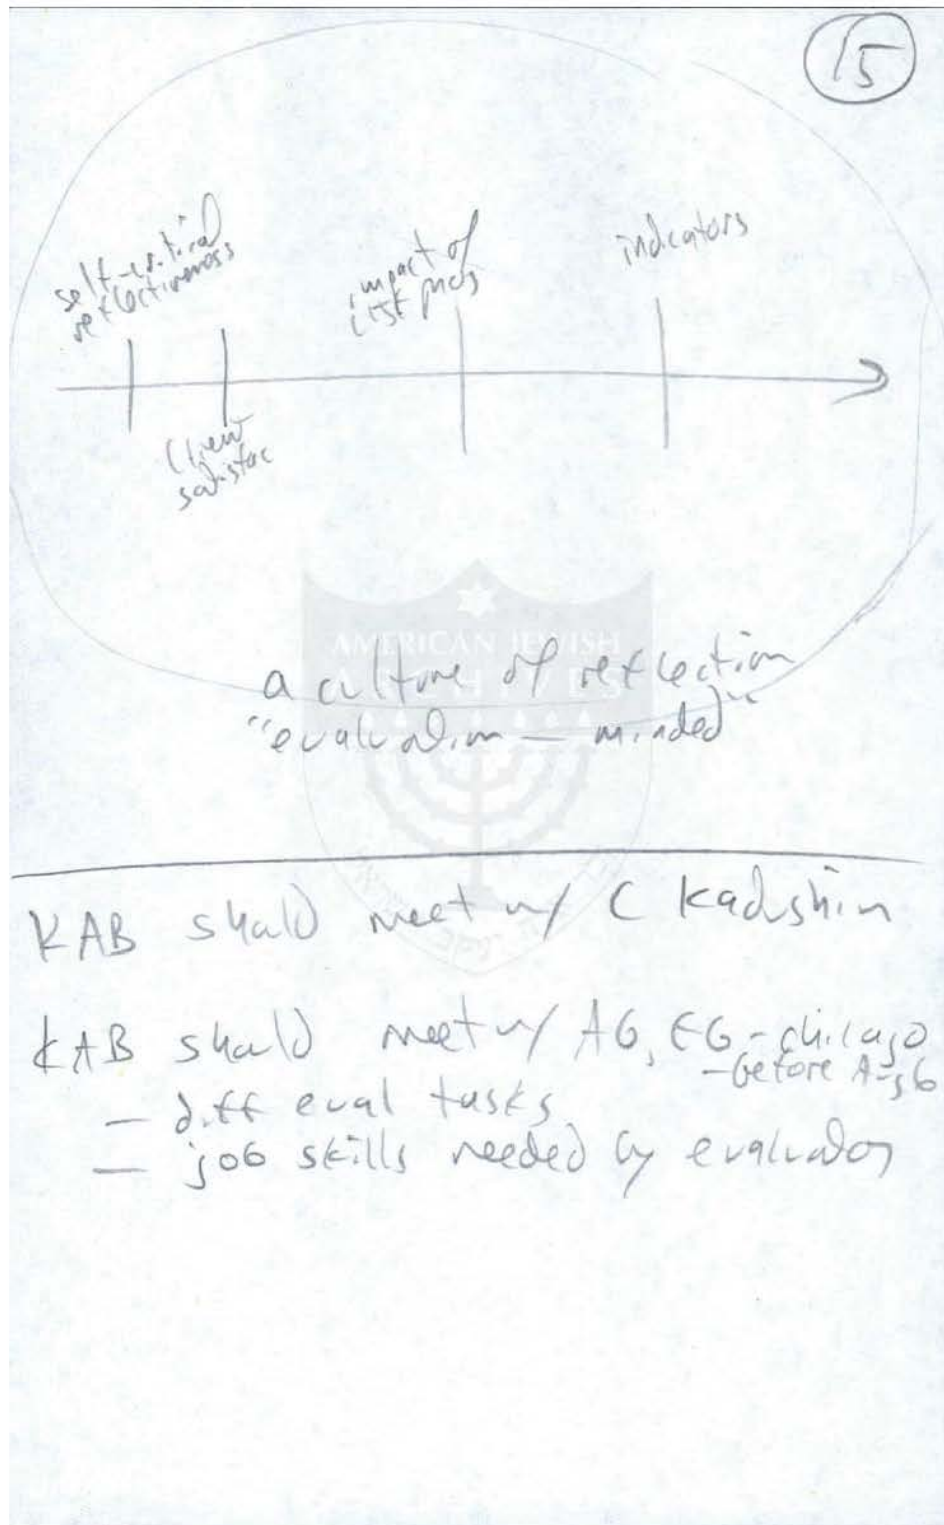 15
self-critical
reflectiveness
impact of
indicators
client
satisfac
AMERICAN JEWISH
ARCHIVES
a culture of reflection
"evaluation-minded"
KAB should meet w/ C Kadushin
KAB should meet w/ AG, EG - chicago
- before Aug 6
- diff eval tasks
- job skills needed by evaluator